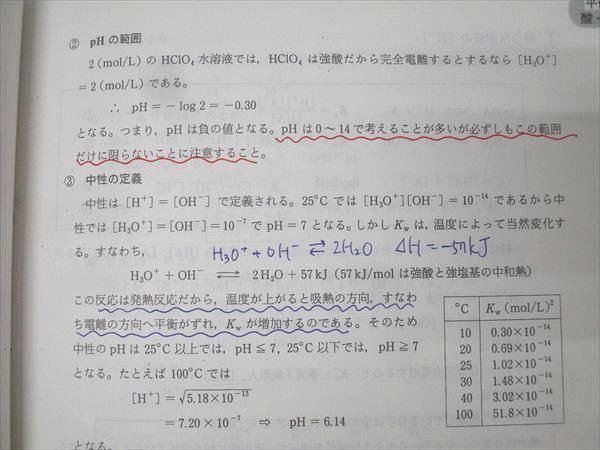 ② pHの範囲
2(mol/L)のHClO₄水溶液では，HClO₄は強酸だから完全電離するとするなら[H₃O⁺]
=2(mol/L)である。
∴ pH=−log 2=−0.30
となる。つまり，pHは負の値となる。pHは0～14で考えることが多いが必ずしもこの範囲
だけに限らないことに注意すること。
③ 中性の定義
中性は[H⁺]=[OH⁻]で定義される。25℃では[H₃O⁺][OH⁻]=10⁻¹⁴であるから中
性では[H₃O⁺]=[OH⁻]=10⁻⁷でpH=7となる。しかしKwは，温度によって当然変化す
る。すなわち，
H₃O⁺+OH⁻ ⇄ 2H₂O ΔH=−57kJ
H₃O⁺+OH⁻ ⇄ 2H₂O+57kJ (57kJ/molは強酸と強塩基の中和熱)
この反応は発熱反応だから，温度が上がると吸熱の方向，すなわ
ち電離の方向へ平衡がずれ，Kwが増加するのである。そのため
中性のpHは25℃以上では，pH≦7，25℃以下では，pH≧7
となる。たとえば100℃では
[H⁺]=√5.18×10⁻¹³
=7.20×10⁻⁷ ⇨ pH=6.14
となる。
℃ Kw(mol/L)²
10 0.30×10⁻¹⁴
20 0.69×10⁻¹⁴
25 1.02×10⁻¹⁴
30 1.48×10⁻¹⁴
40 3.02×10⁻¹⁴
100 51.8×10⁻¹⁴
酸・